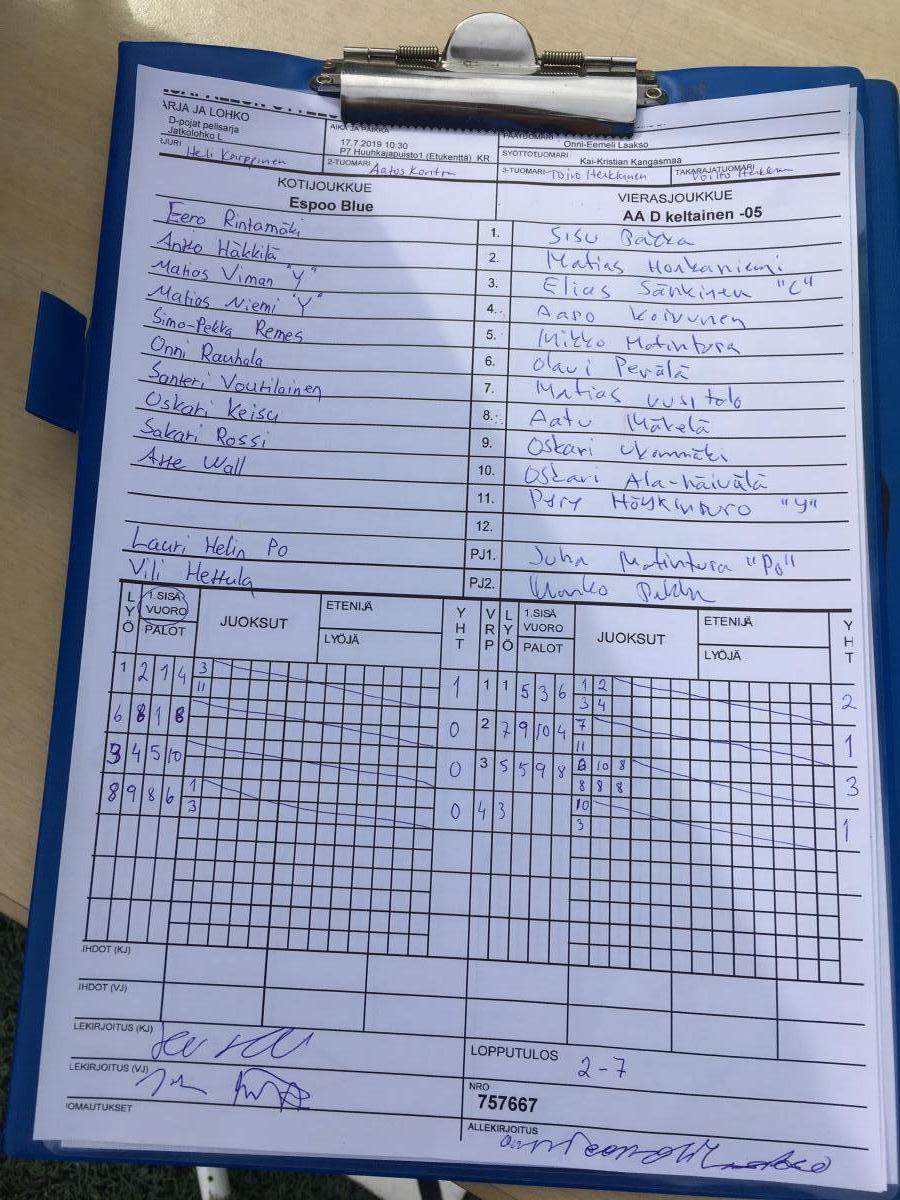 ARJA JA LOHKO
D-pojat pelisarja
Jatkolohko L
AIKA JA PAIKKA
17.7.2019 10:30
P7 Huuhkajapuisto1 (Etukenttä) KR
PÄÄTUOMARI
Onni-Eemeli Laakso
SYÖTTÖTUOMARI
Kai-Kristian Kangasmaa
TUJURI Heli Karppinen
2-TUOMARI Aatos Kontra
3-TUOMARI Toivo Herkkunen
TAKARAJATUOMARI
KOTIJOUKKUE
Espoo Blue
VIERASJOUKKUE
AA D keltainen -05
Eero Rintamäki 1. Sisu
Antto Häkkilä 2. Matias Honkaniemi
Matias Viman "Y" 3. Elias Sänkinen "C"
Matios Niemi "Y" 4. Aaro Koivunen
Simo-Pekka Remes 5. Mikko Matintura
Onni Rauhala 6. Olavi Perälä
Santeri Voutilainen 7. Matias Uusitalo
Oskari Keisu 8. Aatu Mäkelä
Sakari Rossi 9. Oskari
Atte Wall 10. Oskari Ala-häivälä
11. Pyry "Y"
12.
Lauri Helin Po PJ1. Juha Matintura "Po"
Vili Hettula PJ2.
LYÖ 1.SISÄ VUORO PALOT JUOKSUT ETENIJÄ LYÖJÄ YHT VRP LYÖ 1.SISÄ VUORO PALOT JUOKSUT ETENIJÄ LYÖJÄ YHT
1 2 1 4 3 1 1 1 5 3 6 1 2 2
11 3 4
6 8 1 8 0 2 7 9 10 4 7 1
11
3 4 5 10 0 3 5 5 9 8 6 10 8 3
8 8 8
8 9 8 6 1 0 4 3 10 1
3 3
IHDOT (KJ)
IHDOT (VJ)
LEKIRJOITUS (KJ)
LEKIRJOITUS (VJ)
OMAUTUKSET
LOPPUTULOS
2-7
NRO
757667
ALLEKIRJOITUS